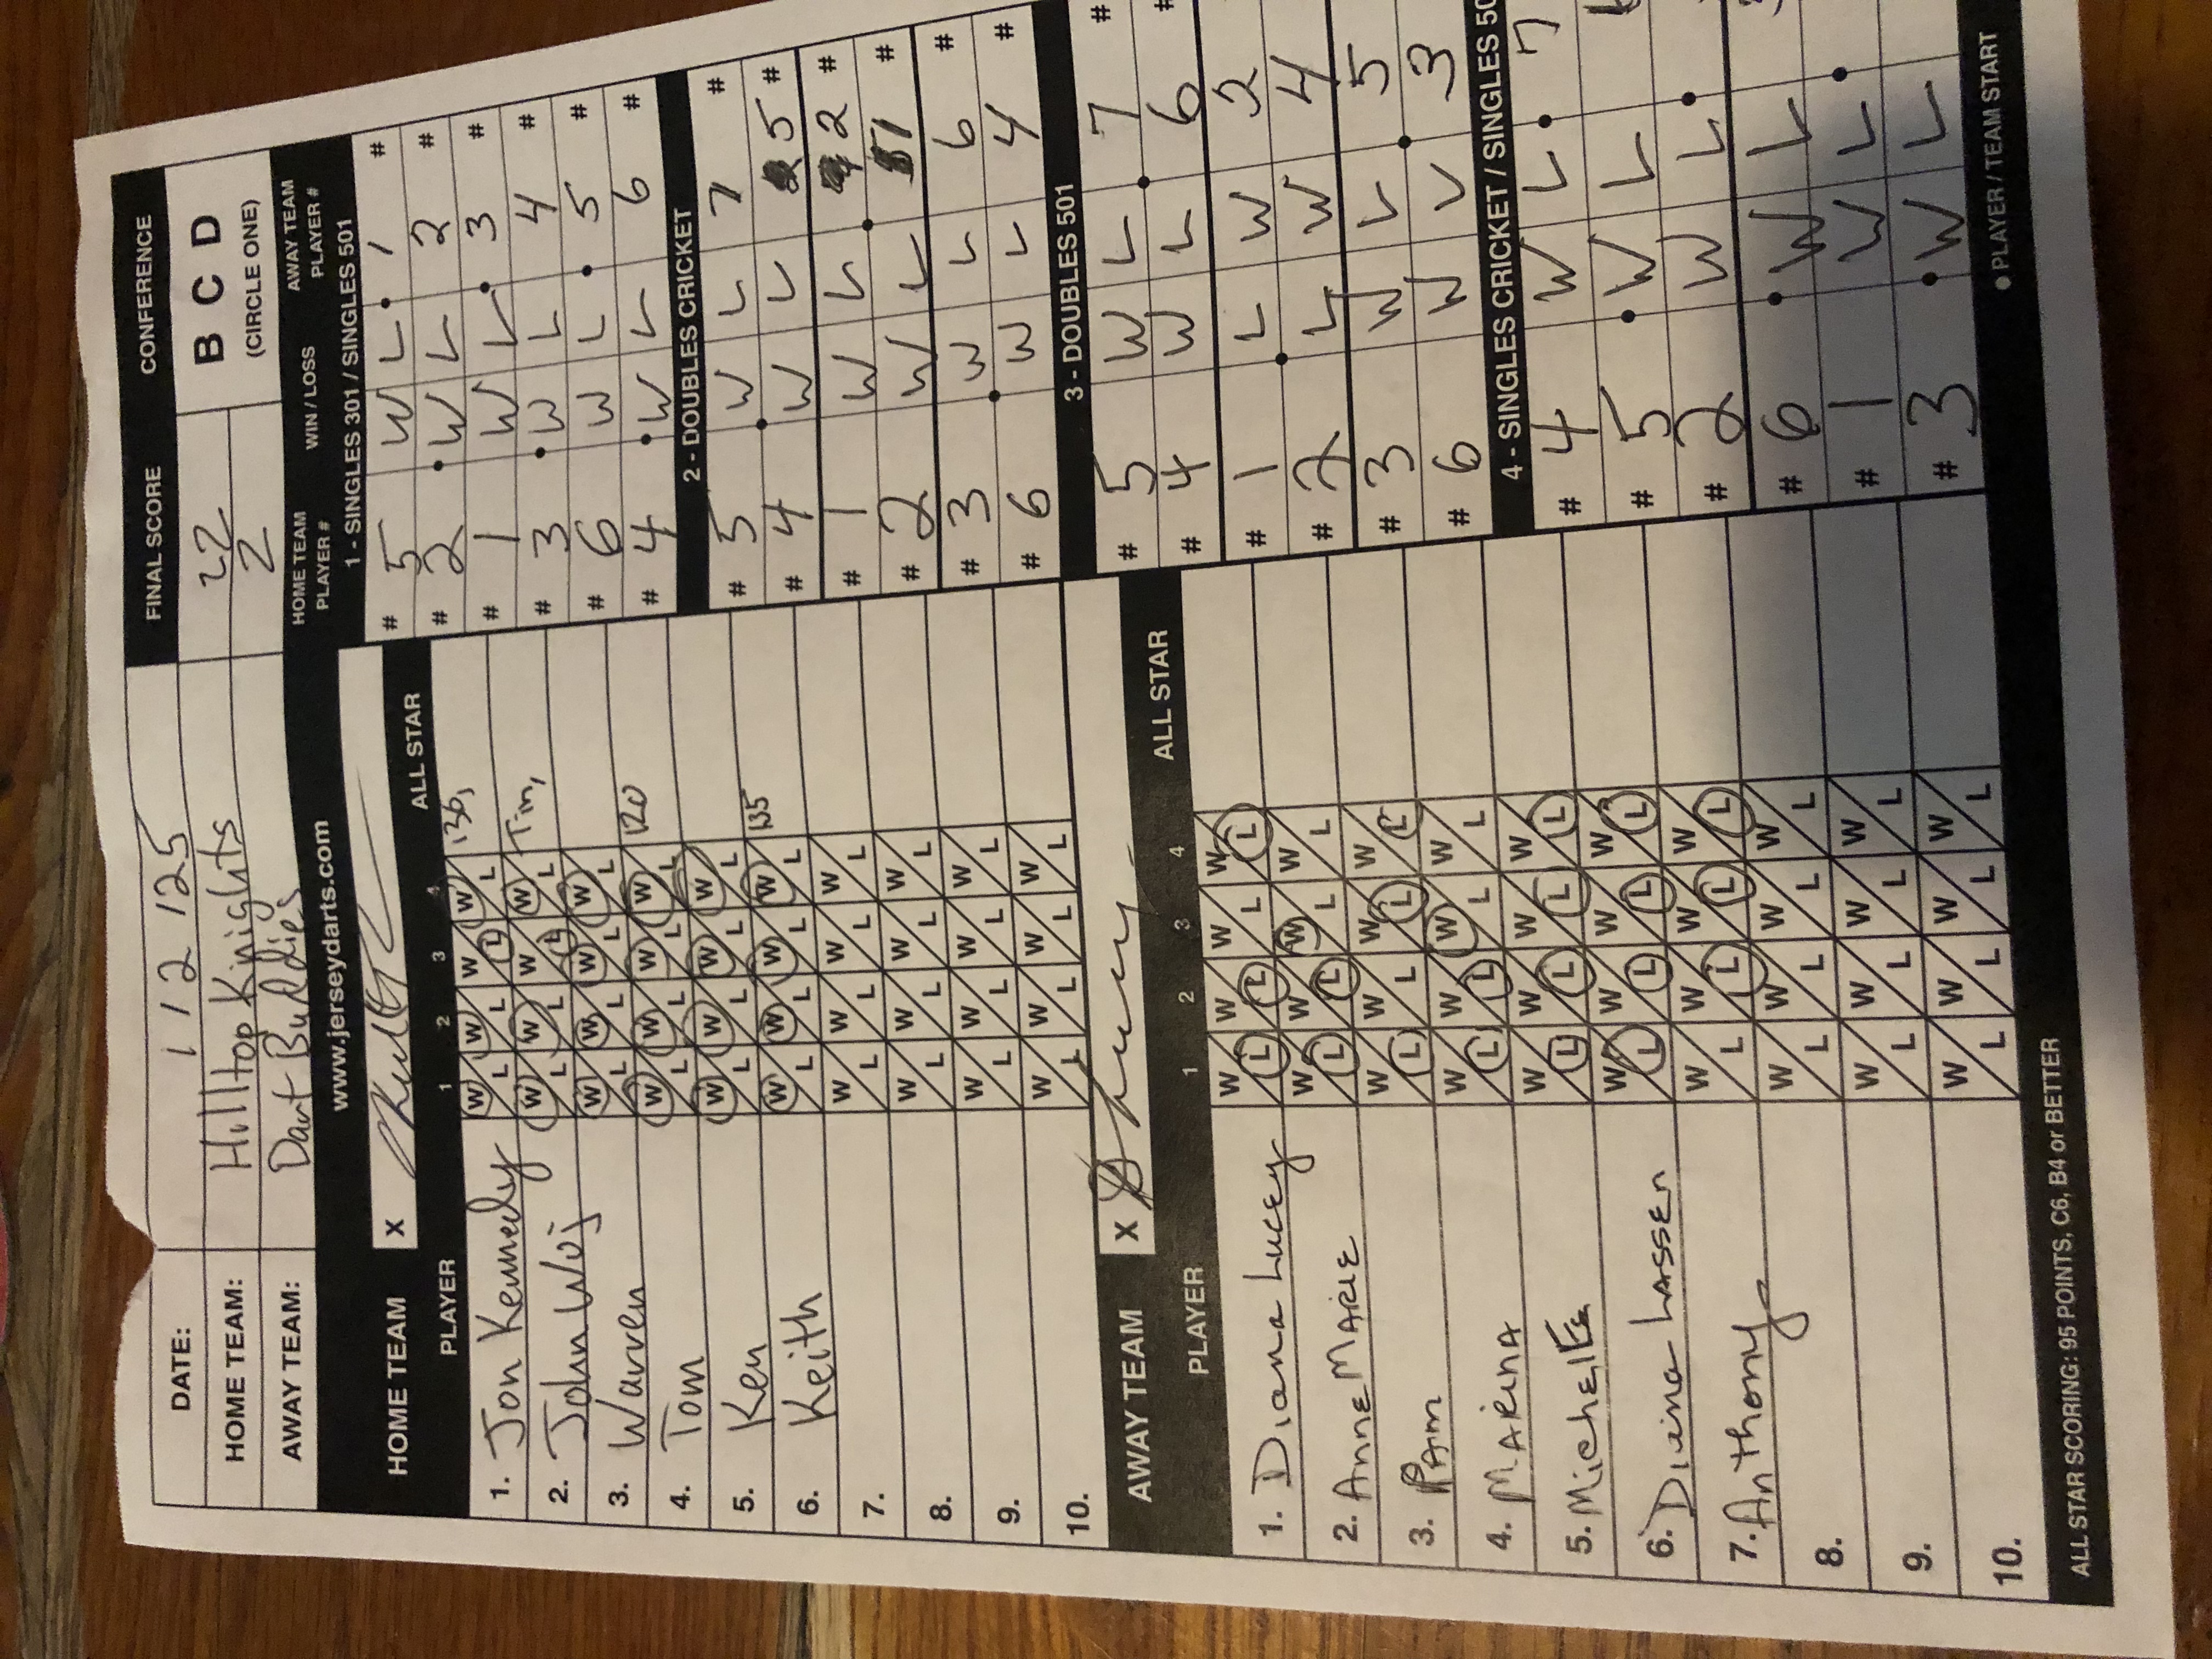 DATE: 1 12 125
HOME TEAM: Hilltop Knights
AWAY TEAM: Dart Buddies
FINAL SCORE
22
2
CONFERENCE
B C D
(CIRCLE ONE)
www.jerseydarts.com
HOME TEAM X
PLAYER 1 2 3 4 ALL STAR
1. Jon Kennedy W L W L W L W L 136,
2. John Woj W L W L W L W L Tin,
3. Warren W L W L W L W L
4. Tom W L W L W L W L 120
5. Ken W L W L W L W L
6. Keith W L W L W L W L 135
7. W L W L W L W L
8. W L W L W L W L
9. W L W L W L W L
10. W L W L W L W L
AWAY TEAM X
PLAYER 1 2 3 4 ALL STAR
1. Diana Lucey W L W L W L W L
2. Anne MARIE W L W L W L W L
3. PAm W L W L W L W L
4. MARINA W L W L W L W L
5. MichElle W L W L W L W L
6. Diena LASSEn W L W L W L W L
7. Anthony W L W L W L W L
8. W L W L W L W L
9. W L W L W L W L
10. W L W L W L W L
HOME TEAM PLAYER # WIN / LOSS AWAY TEAM PLAYER #
1 - SINGLES 301 / SINGLES 501
# 5 W L 1 #
# 2 W L 2 #
# 1 W L 3 #
# 3 W L 4 #
# 6 W L 5 #
# 4 W L 6 #
2 - DOUBLES CRICKET
# 5 W L 7 #
# 4 W L 5 #
# 1 W L 2 #
# 2 W L 1 #
# 3 W L 6 #
# 6 W L 4 #
3 - DOUBLES 501
# 5 W L 7 #
# 4 W L 6 #
# 1 L W 2
# 2 L W 4
# 3 W L 5
# 6 W L 3
4 - SINGLES CRICKET / SINGLES 50
# 4 W L 7
# 5 W L
# 2 W L
# 6 W L
# 1 W L
# 3 W L
● PLAYER / TEAM START
ALL STAR SCORING: 95 POINTS, C6, B4 or BETTER